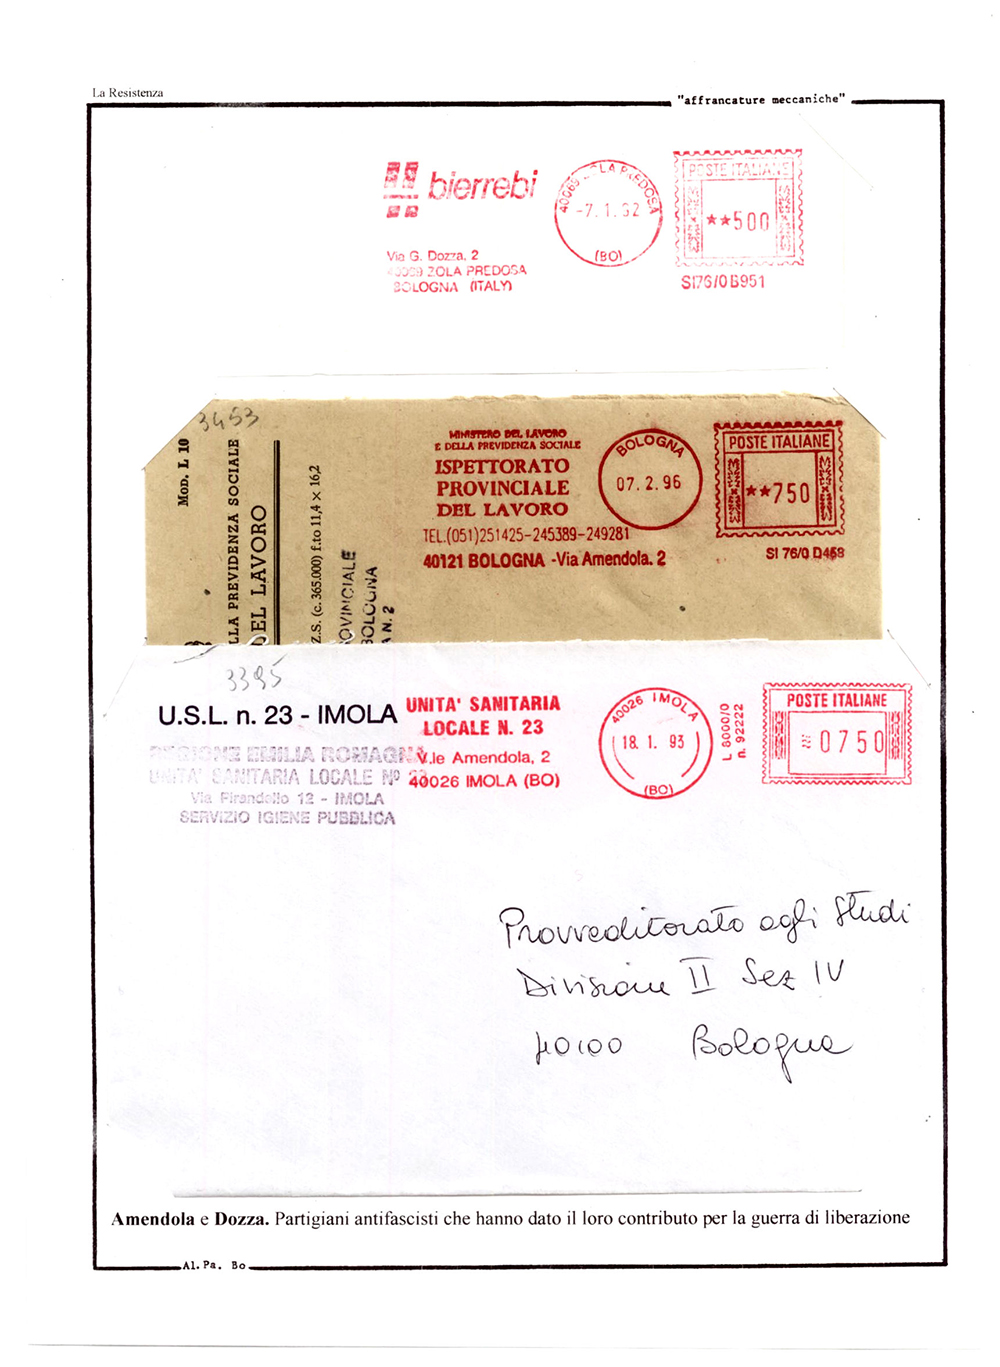 La Resistenza
"affrancature meccaniche"
bierrebi
Via G. Dozza, 2
40069 ZOLA PREDOSA
BOLOGNA (ITALY)
40069 ZOLA PREDOSA
-7.1.92
(BO)
POSTE ITALIANE
**500
SI76/0B951
3453
MOD. L 10
LLA PREVIDENZA SOCIALE
DEL LAVORO
Z.S. (c. 365.000) f.to 11,4 × 16,2
OVINCIALE
BOLOGNA
A N. 2
MINISTERO DEL LAVORO
E DELLA PREVIDENZA SOCIALE
ISPETTORATO
PROVINCIALE
DEL LAVORO
TEL.(051)251425-245389-249281
40121 BOLOGNA -Via Amendola. 2
BOLOGNA
07. 2. 96
POSTE ITALIANE
**750
SI 76/0 D458
3395
U.S.L. n. 23 - IMOLA
REGIONE EMILIA ROMAGNA
UNITA' SANITARIA LOCALE Nº 23
Via Pirandello 12 - IMOLA
SERVIZIO IGIENE PUBBLICA
UNITA' SANITARIA
LOCALE N. 23
V.le Amendola, 2
40026 IMOLA (BO)
40026 IMOLA
18. 1. 93
(BO)
L 8000/0
n. 92222
POSTE ITALIANE
0750
Provveditorato agli Studi
Divisione II Sez IV
40100 Bologna
Amendola e Dozza. Partigiani antifascisti che hanno dato il loro contributo per la guerra di liberazione
Al. Pa. Bo